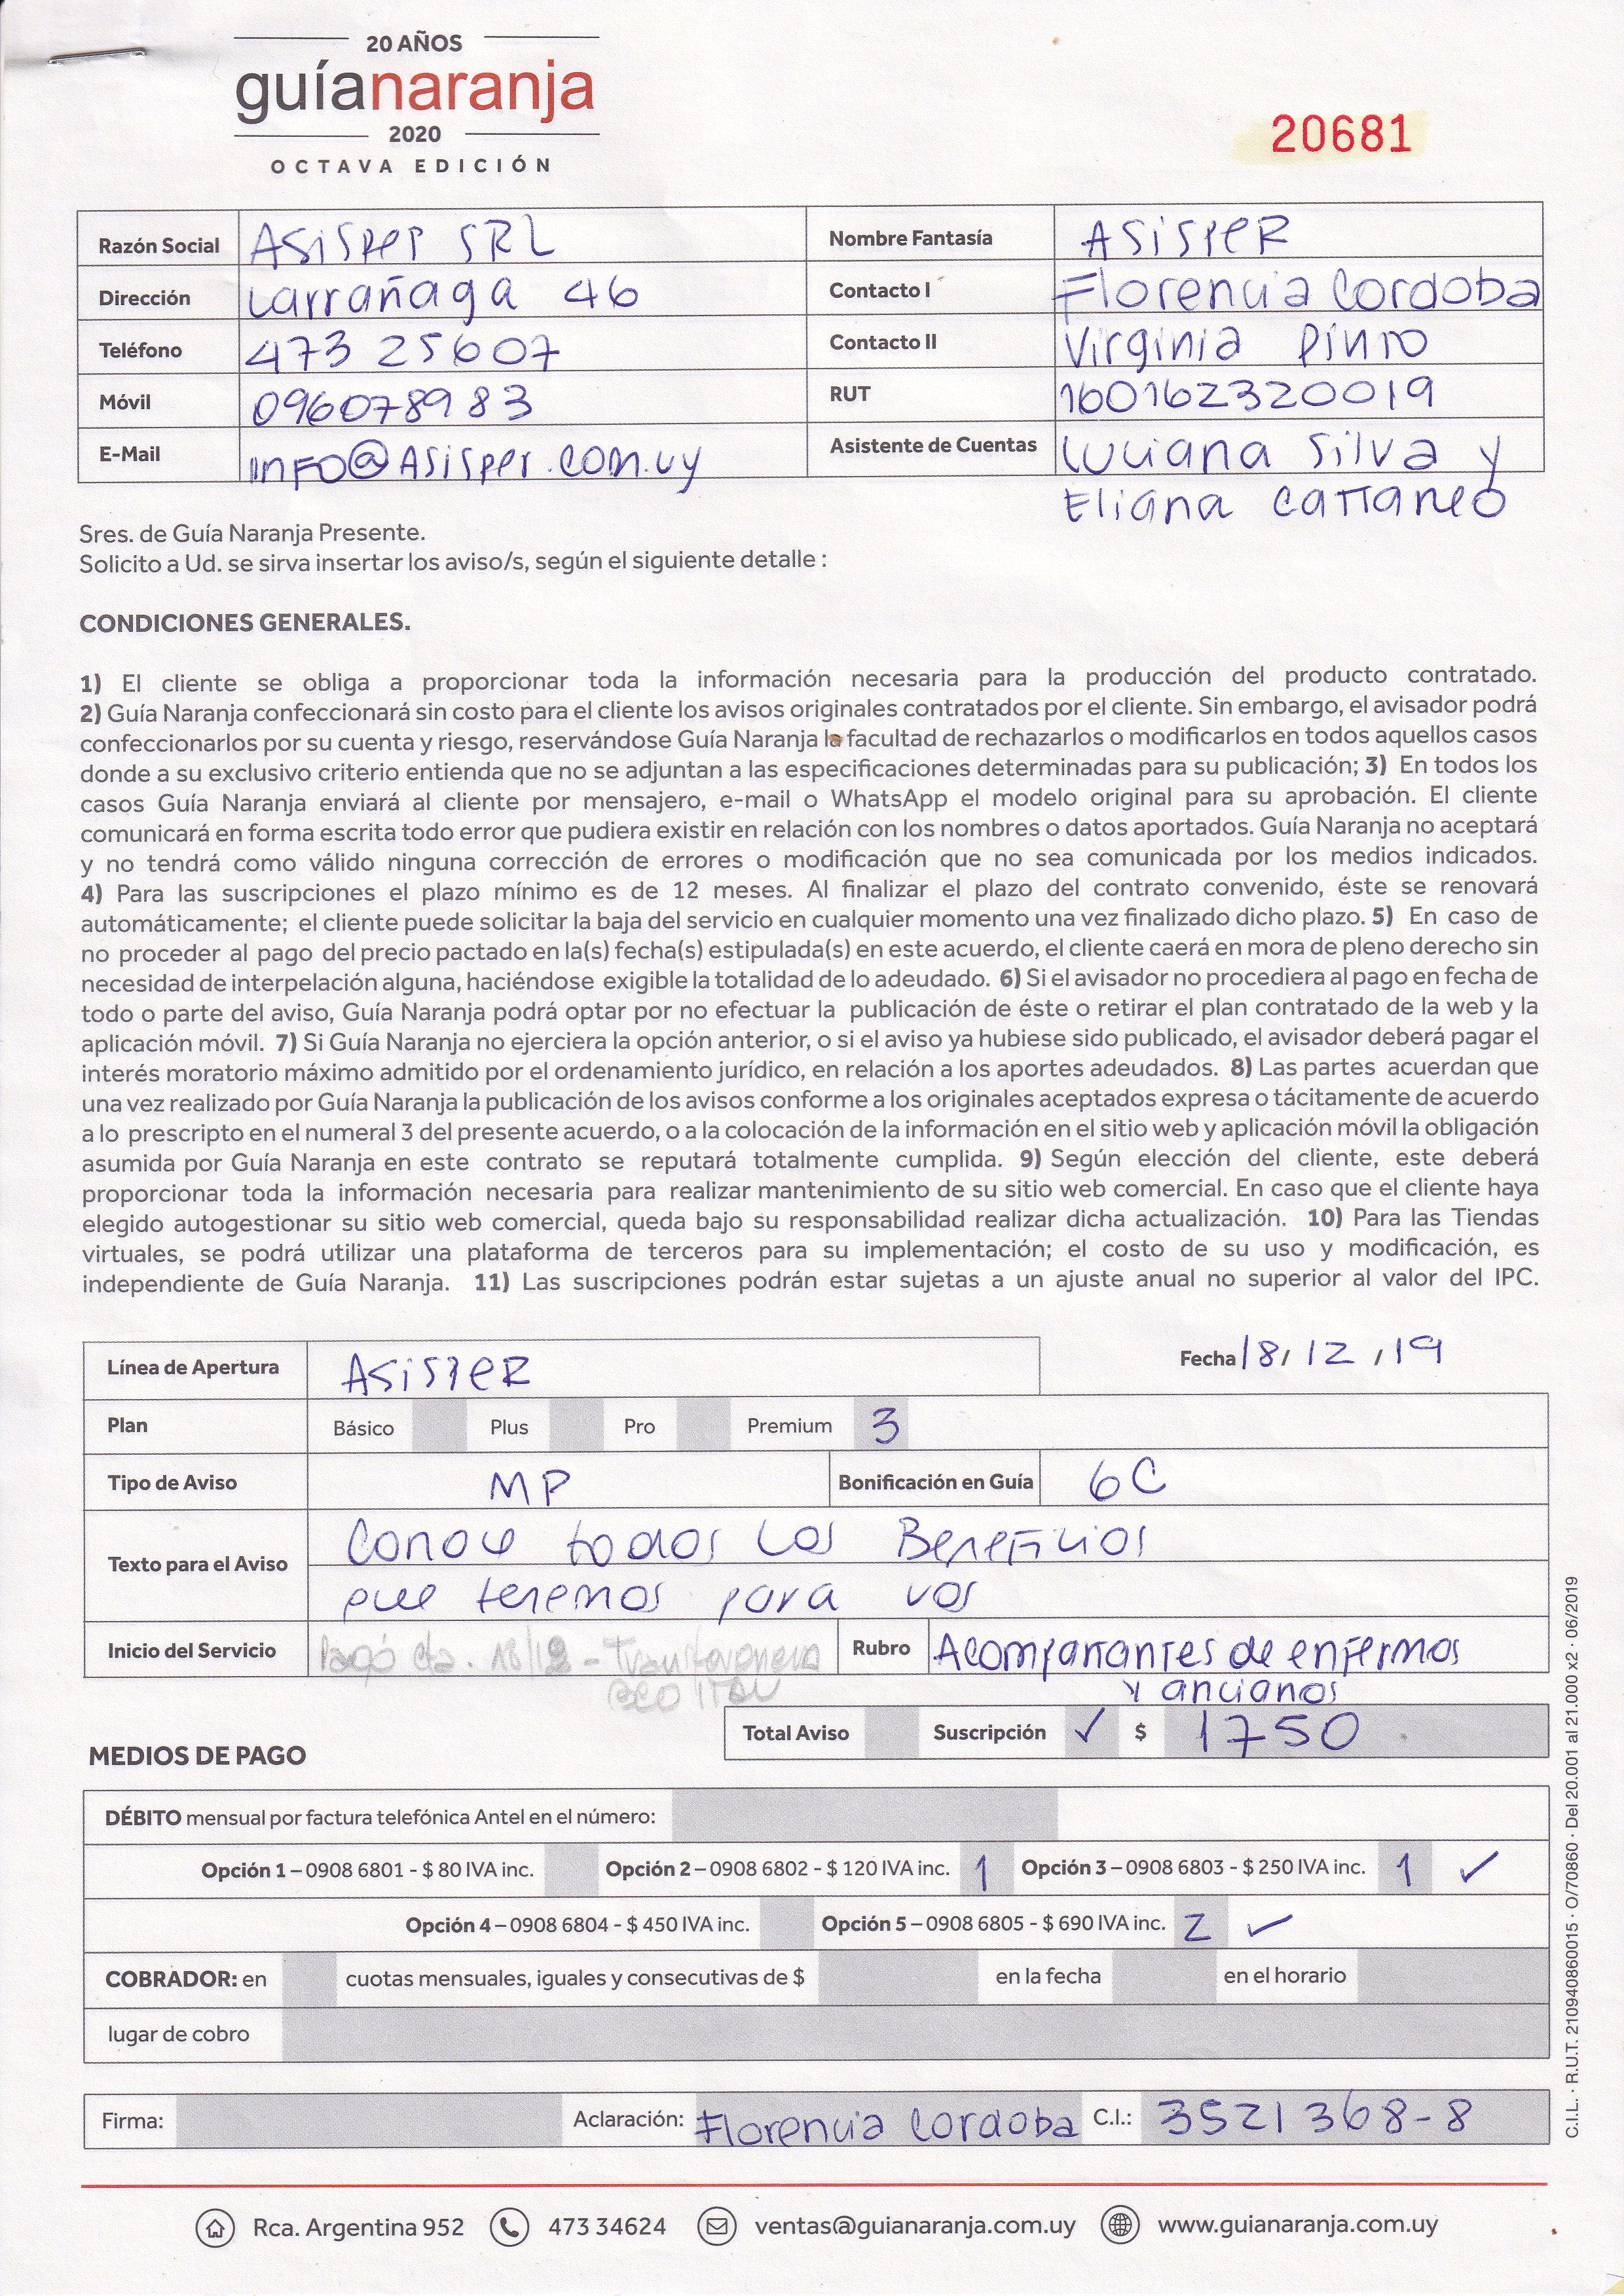 20 AÑOS
guíanaranja
2020
OCTAVA EDICIÓN
20681
Razón Social Asisper SRL Nombre Fantasía ASisper
Dirección Larrañaga 46 Contacto I Florencia Cordoba
Teléfono 473 25607 Contacto II Virginia Pinto
Móvil 096078983 RUT 160162320019
E-Mail info@Asisper.com.uy Asistente de Cuentas Luciana Silva y
Eliana Cattaneo
Sres. de Guía Naranja Presente.
Solicito a Ud. se sirva insertar los aviso/s, según el siguiente detalle :
CONDICIONES GENERALES.
1) El cliente se obliga a proporcionar toda la información necesaria para la producción del producto contratado.
2) Guía Naranja confeccionará sin costo para el cliente los avisos originales contratados por el cliente. Sin embargo, el avisador podrá
confeccionarlos por su cuenta y riesgo, reservándose Guía Naranja la facultad de rechazarlos o modificarlos en todos aquellos casos
donde a su exclusivo criterio entienda que no se adjuntan a las especificaciones determinadas para su publicación; 3) En todos los
casos Guía Naranja enviará al cliente por mensajero, e-mail o WhatsApp el modelo original para su aprobación. El cliente
comunicará en forma escrita todo error que pudiera existir en relación con los nombres o datos aportados. Guía Naranja no aceptará
y no tendrá como válido ninguna corrección de errores o modificación que no sea comunicada por los medios indicados.
4) Para las suscripciones el plazo mínimo es de 12 meses. Al finalizar el plazo del contrato convenido, éste se renovará
automáticamente; el cliente puede solicitar la baja del servicio en cualquier momento una vez finalizado dicho plazo. 5) En caso de
no proceder al pago del precio pactado en la(s) fecha(s) estipulada(s) en este acuerdo, el cliente caerá en mora de pleno derecho sin
necesidad de interpelación alguna, haciéndose exigible la totalidad de lo adeudado. 6) Si el avisador no procediera al pago en fecha de
todo o parte del aviso, Guía Naranja podrá optar por no efectuar la publicación de éste o retirar el plan contratado de la web y la
aplicación móvil. 7) Si Guía Naranja no ejerciera la opción anterior, o si el aviso ya hubiese sido publicado, el avisador deberá pagar el
interés moratorio máximo admitido por el ordenamiento jurídico, en relación a los aportes adeudados. 8) Las partes acuerdan que
una vez realizado por Guía Naranja la publicación de los avisos conforme a los originales aceptados expresa o tácitamente de acuerdo
a lo prescripto en el numeral 3 del presente acuerdo, o a la colocación de la información en el sitio web y aplicación móvil la obligación
asumida por Guía Naranja en este contrato se reputará totalmente cumplida. 9) Según elección del cliente, este deberá
proporcionar toda la información necesaria para realizar mantenimiento de su sitio web comercial. En caso que el cliente haya
elegido autogestionar su sitio web comercial, queda bajo su responsabilidad realizar dicha actualización. 10) Para las Tiendas
virtuales, se podrá utilizar una plataforma de terceros para su implementación; el costo de su uso y modificación, es
independiente de Guía Naranja. 11) Las suscripciones podrán estar sujetas a un ajuste anual no superior al valor del IPC.
Línea de Apertura ASisper Fecha 18/ 12 /19
Plan Básico Plus Pro Premium 3
Tipo de Aviso MP Bonificación en Guía 6C
Texto para el Aviso Conoce todos los Beneficios
que tenemos para vos
Inicio del Servicio Pagó cta. Transferencia Rubro Acompañantes de enfermos
BCO ITAU y ancianos
Total Aviso Suscripción ✓ $ 1750
MEDIOS DE PAGO
DÉBITO mensual por factura telefónica Antel en el número:
Opción 1 – 0908 6801 - $ 80 IVA inc. Opción 2 – 0908 6802 - $ 120 IVA inc. 1 Opción 3 – 0908 6803 - $ 250 IVA inc. 1 ✓
Opción 4 – 0908 6804 - $ 450 IVA inc. Opción 5 – 0908 6805 - $ 690 IVA inc. 2 ✓
COBRADOR: en cuotas mensuales, iguales y consecutivas de $ en la fecha en el horario
lugar de cobro
Firma: Aclaración: Florencia Cordoba C.I.: 3521368-8
Rca. Argentina 952 473 34624 ventas@guianaranja.com.uy www.guianaranja.com.uy
C.I.L. · R.U.T. 210940860015 · O/70860 · Del 20.001 al 21.000 x2 · 06/2019